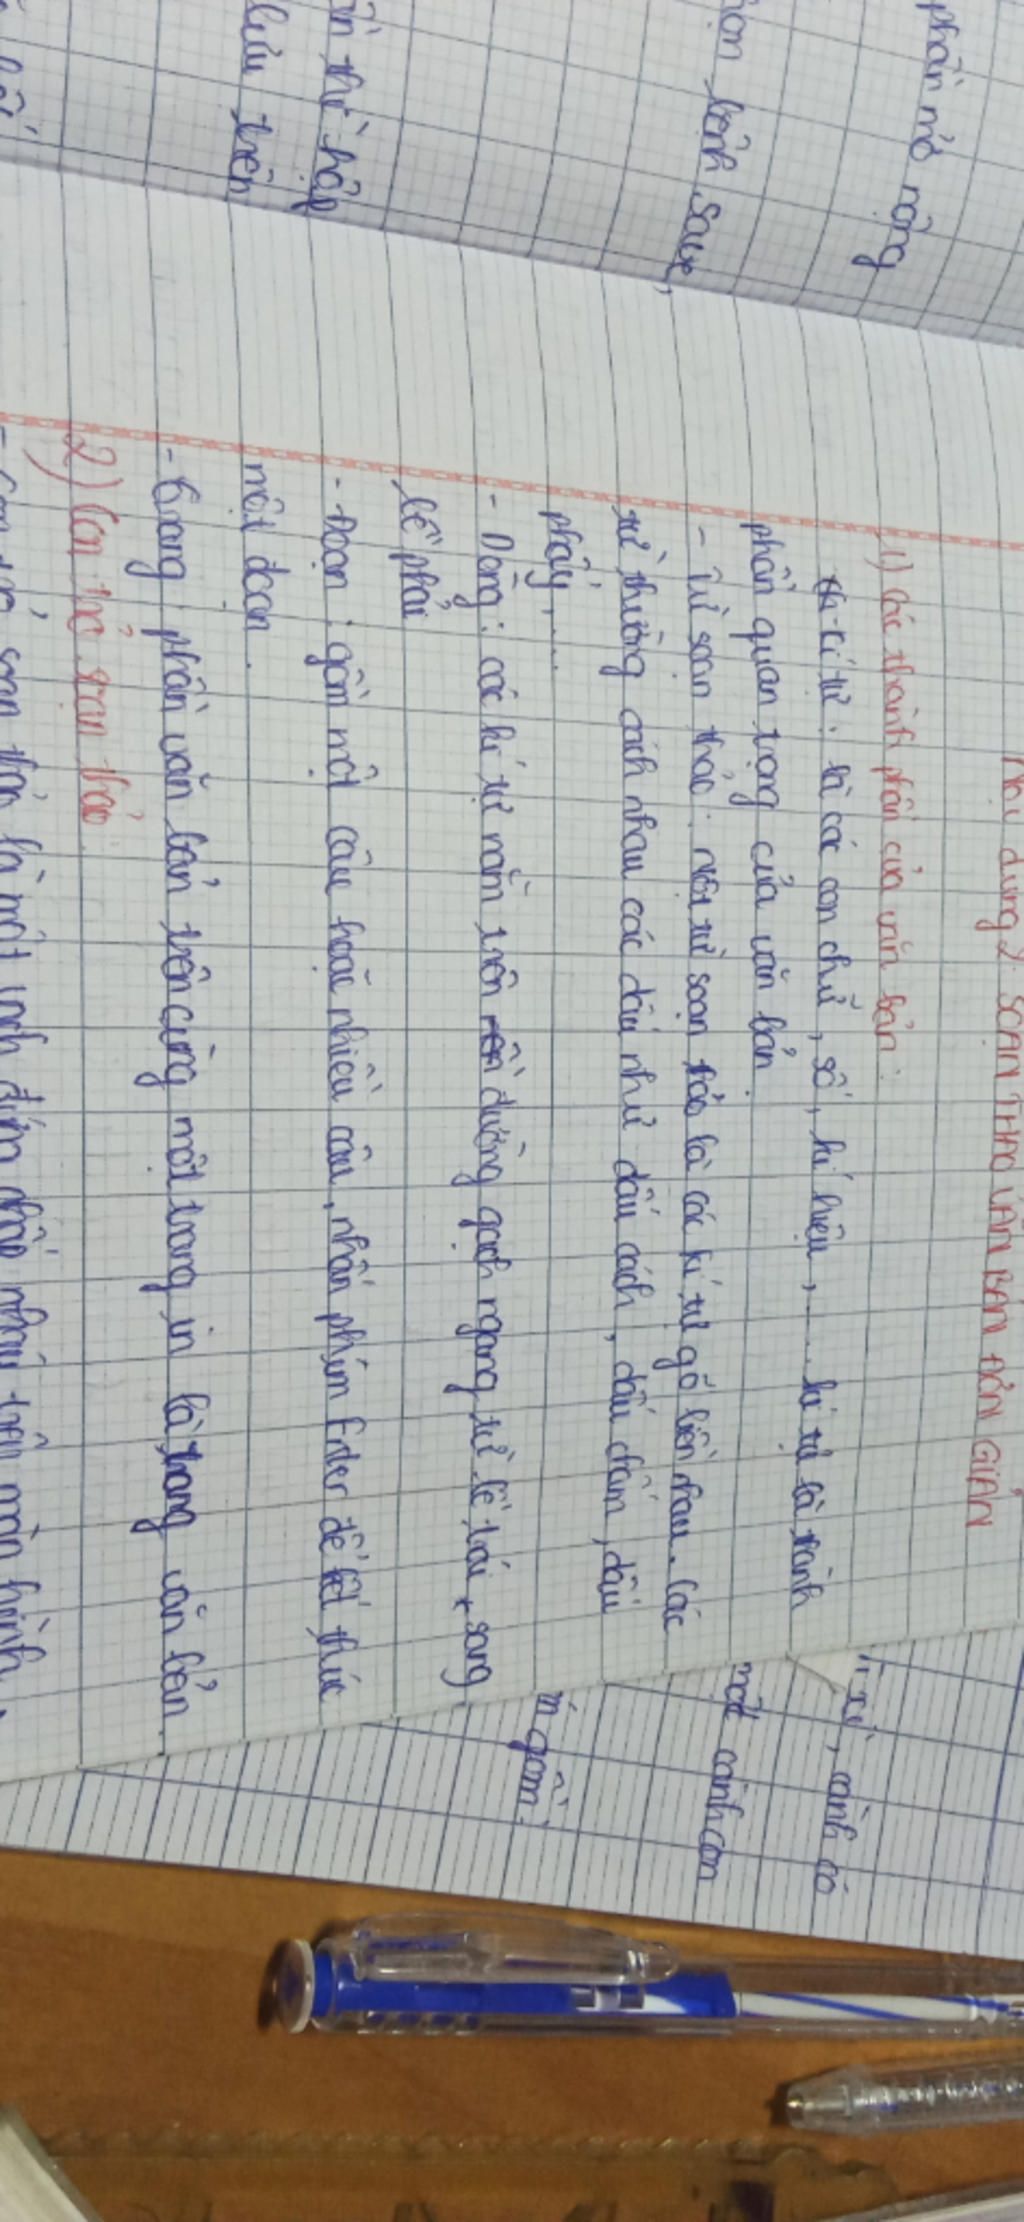 phần mở rộng
lệnh sau,
thì hộp
lưu trên
Nội dung 2: SOẠN THẢO VĂN BẢN ĐƠN GIẢN
1) Các thành phần của văn bản:
- kí tự: là các con chữ, số, kí hiệu, .... kí tự là thành
phần quan trọng của văn bản.
- Từ soạn thảo: một từ soạn thảo là các kí tự gõ liền nhau. Các
từ thường cách nhau các dấu như dấu cách, dấu chấm, dấu
phẩy,...
- Dòng: các kí tự nằm trên đường gạch ngang từ lề trái sang
lề phải
- Đoạn: gồm một câu hoặc nhiều câu, nhấn phím Enter để kết thúc
một đoạn.
- Trang: phần văn bản trên cùng một trang in là trang văn bản.
2) Con trỏ soạn thảo:
- Con trỏ soạn thảo là một vạch đứng nhấp nháy trên màn hình,
cành có
một cành con
gồm: